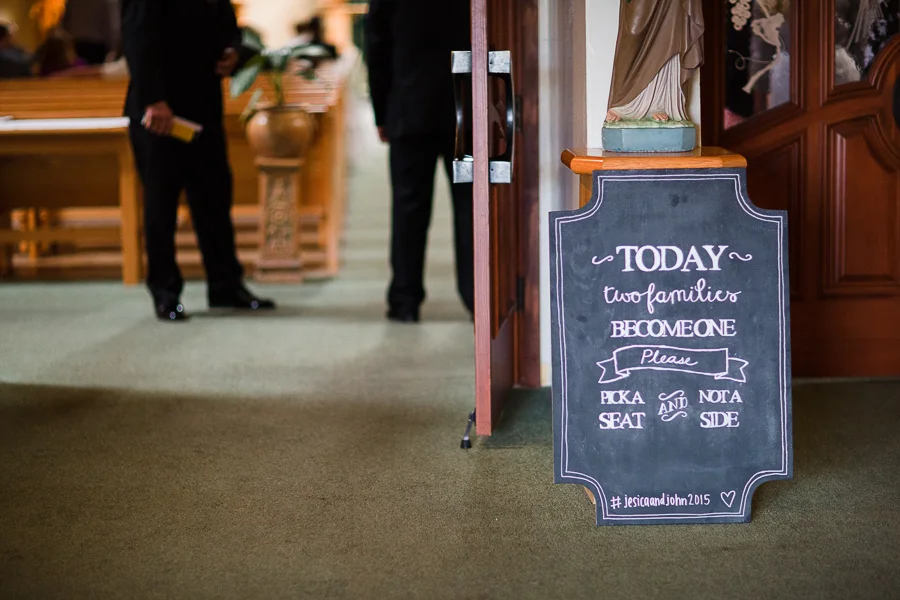 TODAY
two families
BECOME ONE
Please
PICK A AND NOT A
SEAT SIDE
#jesicaandjohn2015